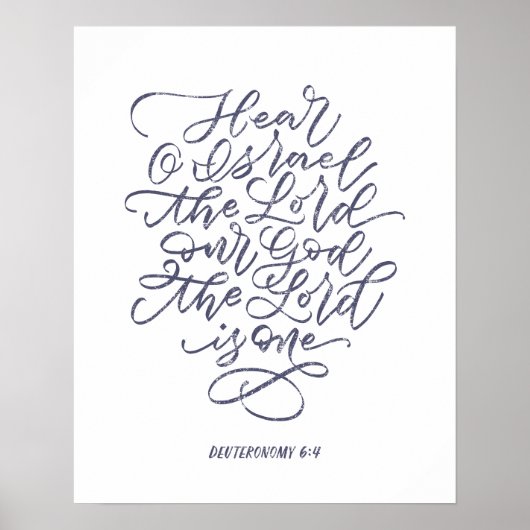 Hear
O Israel
the Lord
our God
the Lord
is one
DEUTERONOMY 6:4